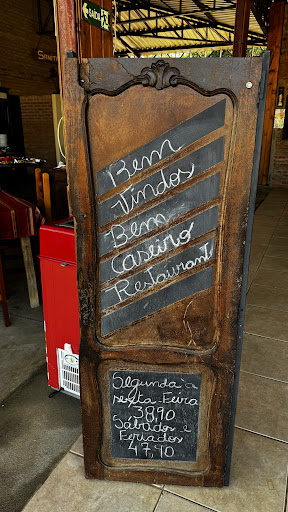 SAÍDA
Bem
Vindos
Bem
Caseiro
Restaurant
Segunda a
sexta-Feira
38,90
Sábados e
Feriados
47,90